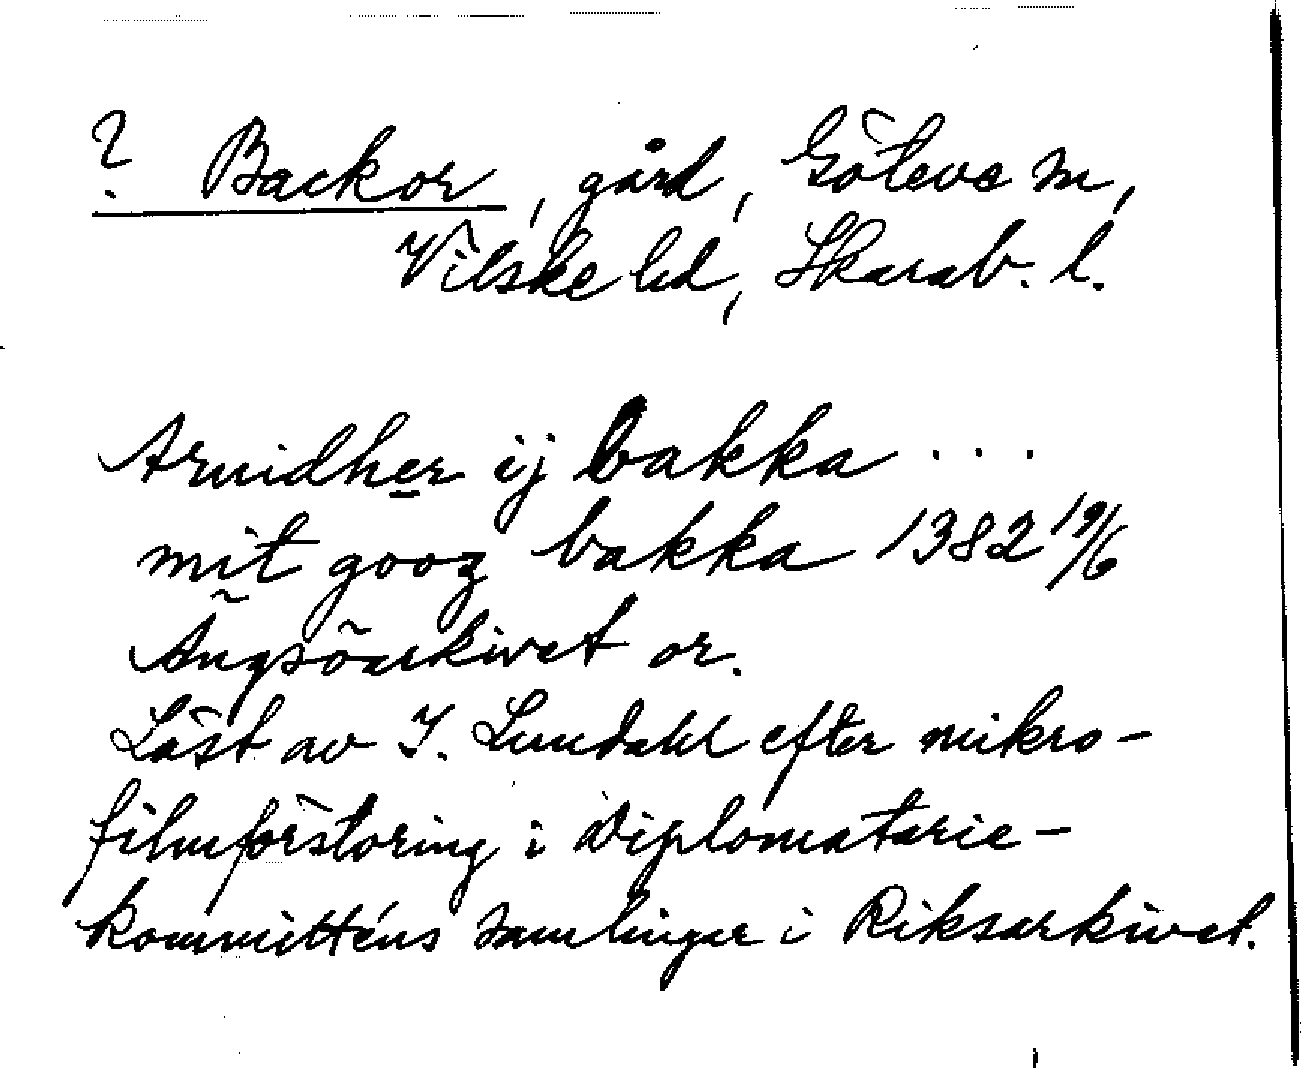 ? Backor, gård, Göteve sn,
Vilske hd, Skarab. l.
Aruidher ij bakka ...
mit gooz bakka 1382 19/6
Ängsöarkivet or.
Läst av I. Lundahl efter mikro-
filmförstoring i Diplomatarie-
kommitténs samlingar i Riksarkivet.